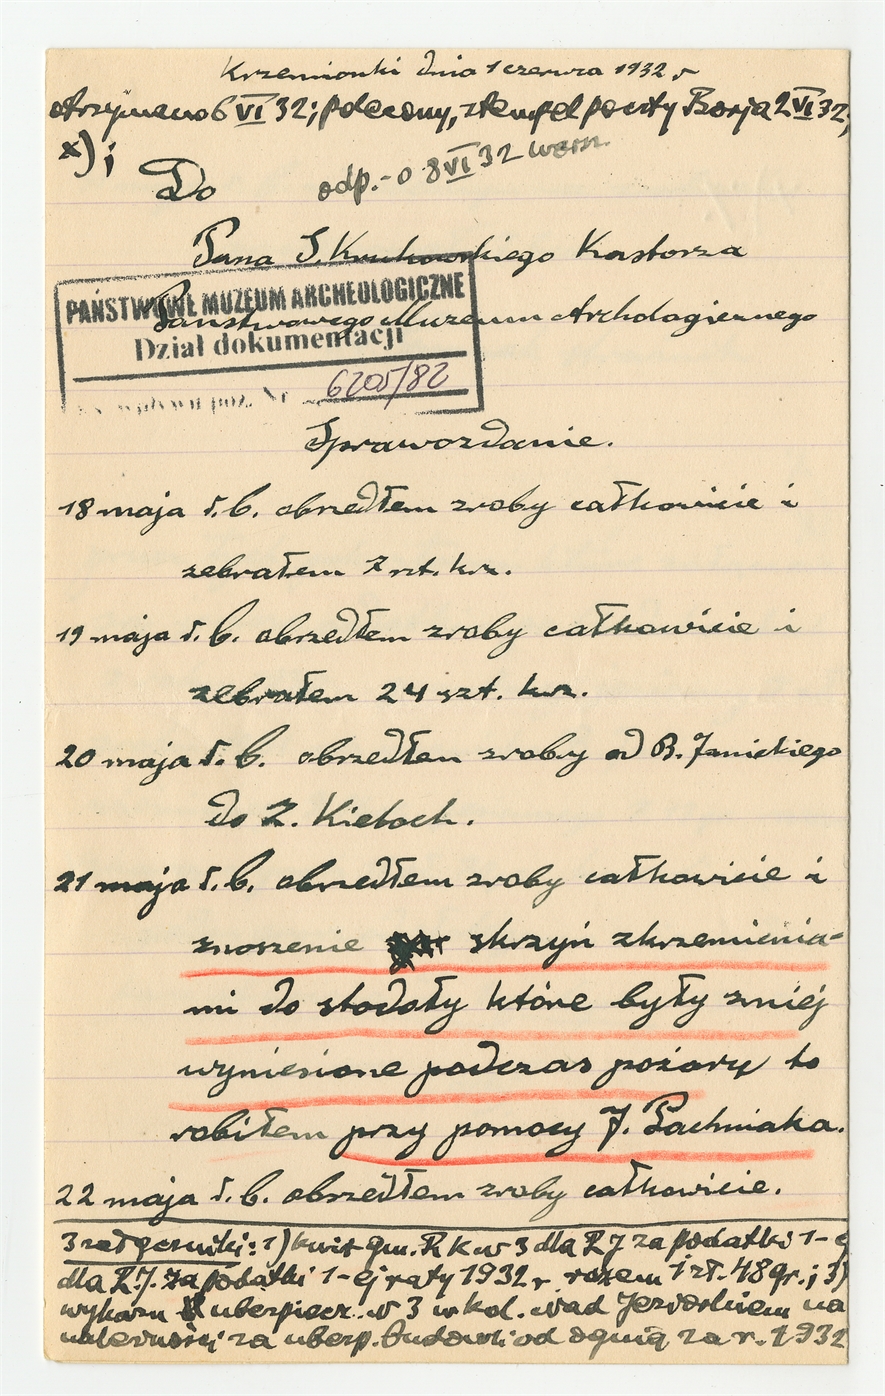 Krzemionki dnia 1 czerwca 1932 r
otrzymano 6 VI 32; polecony, stempel poczty Borja 2 VI 32;
x) i
odp.-o 8 VI 32 warsz.
Do
Pana S. Krukowskiego Kustorza
Państwowego Muzeum Archologicznego
PAŃSTWOWE MUZEUM ARCHEOLOGICZNE
Dział dokumentacji
6205/82
Sprawozdanie.
18 maja r. b. obszedłem zroby całkowicie i
zebrałem 7 szt. krz.
19 maja r. b. obszedłem zroby całkowicie i
zebrałem 24 szt. krz.
20 maja r. b. obszedłem zroby od B. Janickiego
do Z. Kieloch.
21 maja r. b. obszedłem zroby całkowicie i
znoszenie skrzyń zkrzemienia-
mi do stodoły które były zniej
wyniesione podczas pożary to
robiłem przy pomocy J. Pachniaka.
22 maja r. b. obszedłem zroby całkowicie.
3 załączniki: 1) kwit gm. R K w 3 dla R J za podatki 1-ej
dla R. J. za podatki 1-ej raty 1932 r razem 1 zł. 48 gr.; 3)
wykazu ubezpiecz. w 3 w kol. nad
należności za ubezp. budowli od ognia za r. 1932